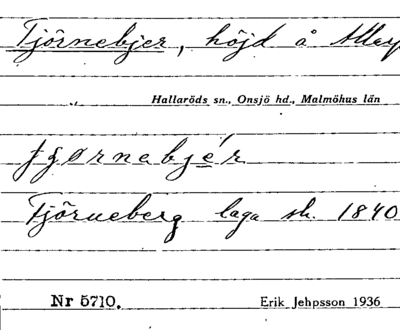 Tjörnebjer, höjd å
Hallaröds sn., Onsjö hd., Malmöhus län
tjørnebjér
Tjörneberg laga sk. 1840
Nr 5710. Erik Jehpsson 1936